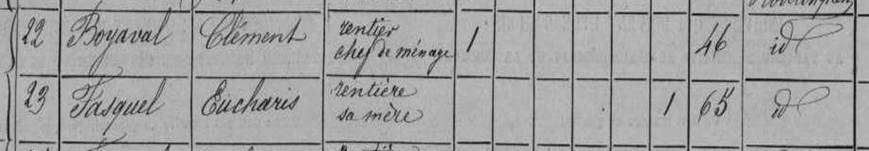 22 Boyaval Clément rentier
chef de ménage 1 46 id
23 Fasquel Eucharis rentière
sa mère 1 65 id